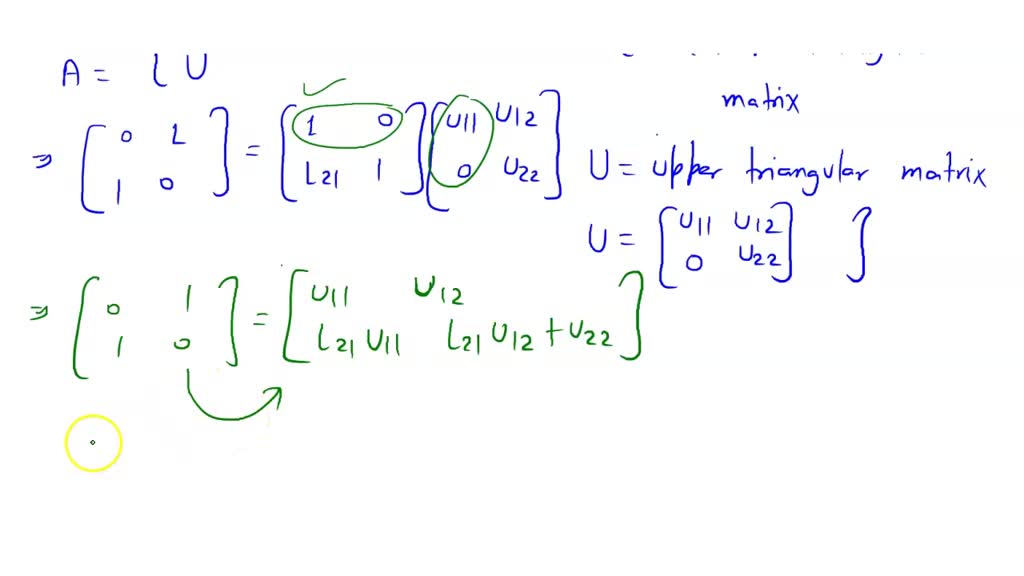 A = L U
⇒ [ 0 1 ; 1 0 ] = [ 1 0 ; L21 1 ] [ U11 U12 ; 0 U22 ]
matrix
U = upper triangular matrix
U = [ U11 U12 ; 0 U22 ] ]
⇒ [ 0 1 ; 1 0 ] = [ U11 U12 ; L21 U11 L21 U12 + U22 ]